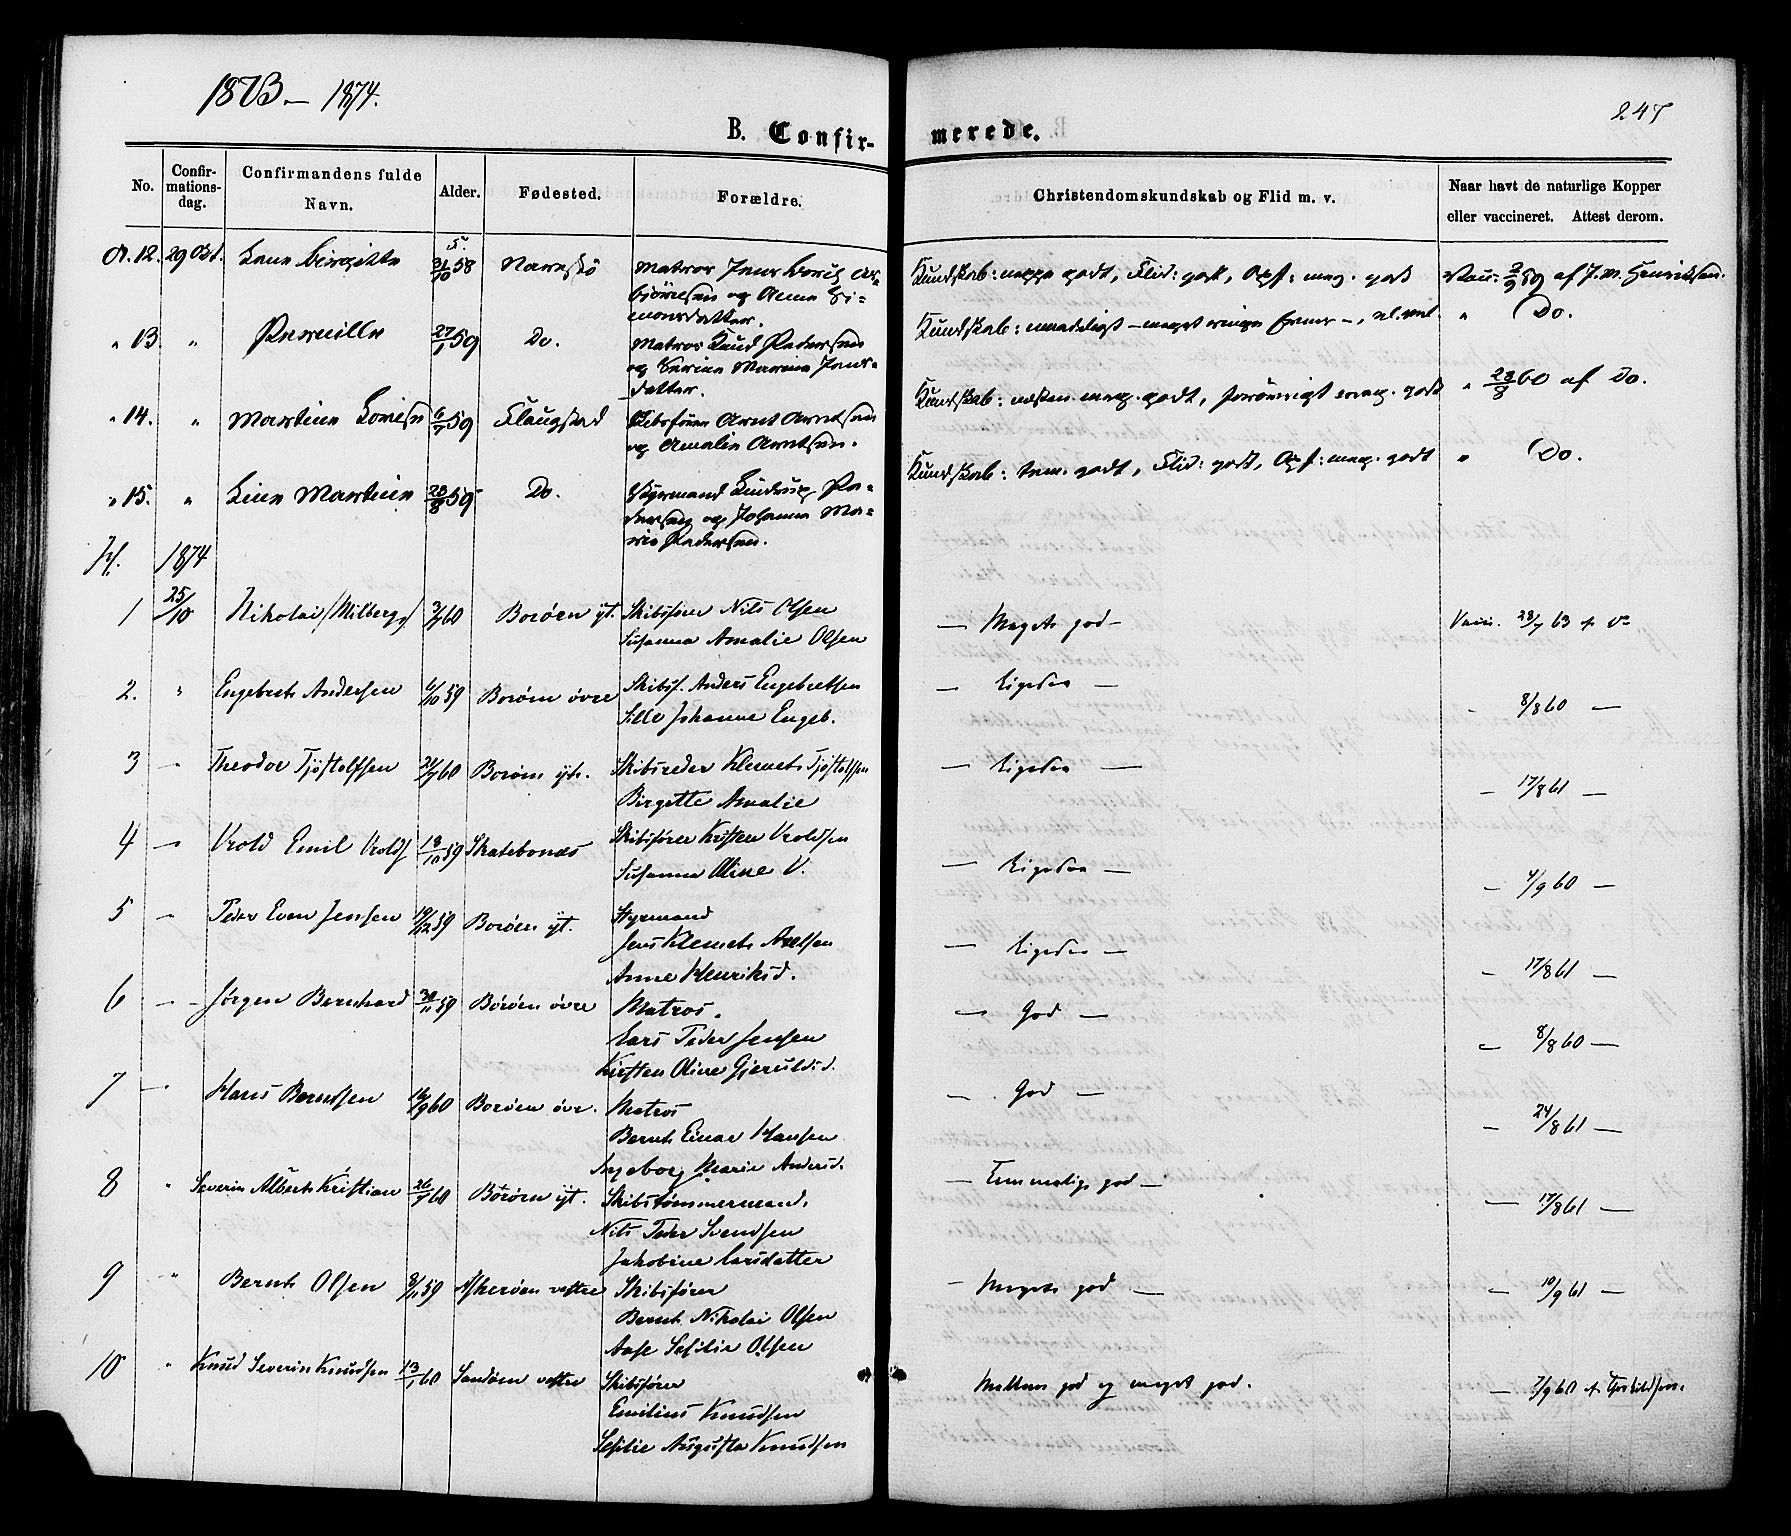 1873 — 1874.
247
B. Confir-
merede.
No.
Confir-
mations-
dag.
Confirmandens fulde
Navn.
Alder.
Fødested.
Forældre.
Christendomskundskab og Flid m. v.
Naar havt de naturlige Kopper
eller vaccineret. Attest derom.
12. 29 Oct. Birgitte 31/10 58 Narestø Matros Jens
og Anna Si-
monsdatter.
Kundskab: neppe godt, Flid: godt, Opf: meg. godt
Vacc. 2/9 59 af J. M. Henriksen.
" 13 " Pernille 27/1 59 Do. Matros Knud Pedersen
og Marie Jens-
datter.
Kundskab: maadeligt — meget ringe
" Do.
" 14. " Martine Lovise 6/7 59 Flaugstad Skibsfører Arnt Arntsen
og Amalie Arntsen.
Kundskab: næsten meg. godt, forøvrigt meg. godt
" 28/8 60 af Do.
" 15. " Line Martine 28/8 59 Do. Styrmand Pe-
dersen og Johanne Ma-
rie Pedersen.
Kundskab: tem. godt, Flid: godt, Opf: meg. godt
" Do.
1874
1 25/10 Nikolai (Milberg) 3/7 60 Borøen yt. Skibsfører Nils Olsen
Susanna Amalie Olsen
— Meget god —
Vacc. 23/7 63 af do
2. " Engebret Andersen 6/10 59 Borøen øvre Skibsf. Anders Engebretsen
Sille Johanne Engeb.
— Ligesaa —
- 8/8 60 —
3 — Theodor Tjøstolfsen 21/7 60 Borøen ytr. Skibsreder Klemet Tjøstolfsen
Birgette Amalie
— Ligesaa —
— 17/8 61 —
4 — Vrold Emil Vrolds 13/10 59 Skatebonæs Skibsfører Kristen Vroldsen
Susanna Oline V.
— Ligesaa —
— 4/9 60 —
5 — Peder Even Jensen 19/12 59 Borøen yt. Styrmand
Jens Klemet Axelsen
Anne Henriksd.
— Ligesaa —
— 17/8 61 —
6 — Jørgen Bernhard 30/11 59 Borøen øvre Matros.
Lars Peder Jensen
Kirsten Oline Gjeruldsd.
— God —
— 8/8 60 —
7 — Hans Berntsen 16/9 60 Borøen øvr. Matros
Bernt Einar Hansen
Ingeborg Marie Andersd.
— God —
— 24/8 61 —
8 " Severin Albert Kristian 26/7 60 Borøen yt. Skibstømmermand.
Nils Peder Svendsen
Jakobine Larsdatter
— Temmelig god —
— 17/8 61 —
9 " Bernt Olsen 8/11 59 Askerøen vestre Skibsfører
Bernt Nikolai Olsen
Aase Sesilie Olsen
— Meget god —
— 10/9 61 —
10 " Knud Severin Knudsen 13/1 60 Sandøen vestre Skibsfører
Emilius Knudsen
Sesilie Augusta Knudsen
Mellem god og meget god.
— 7/9 60 af